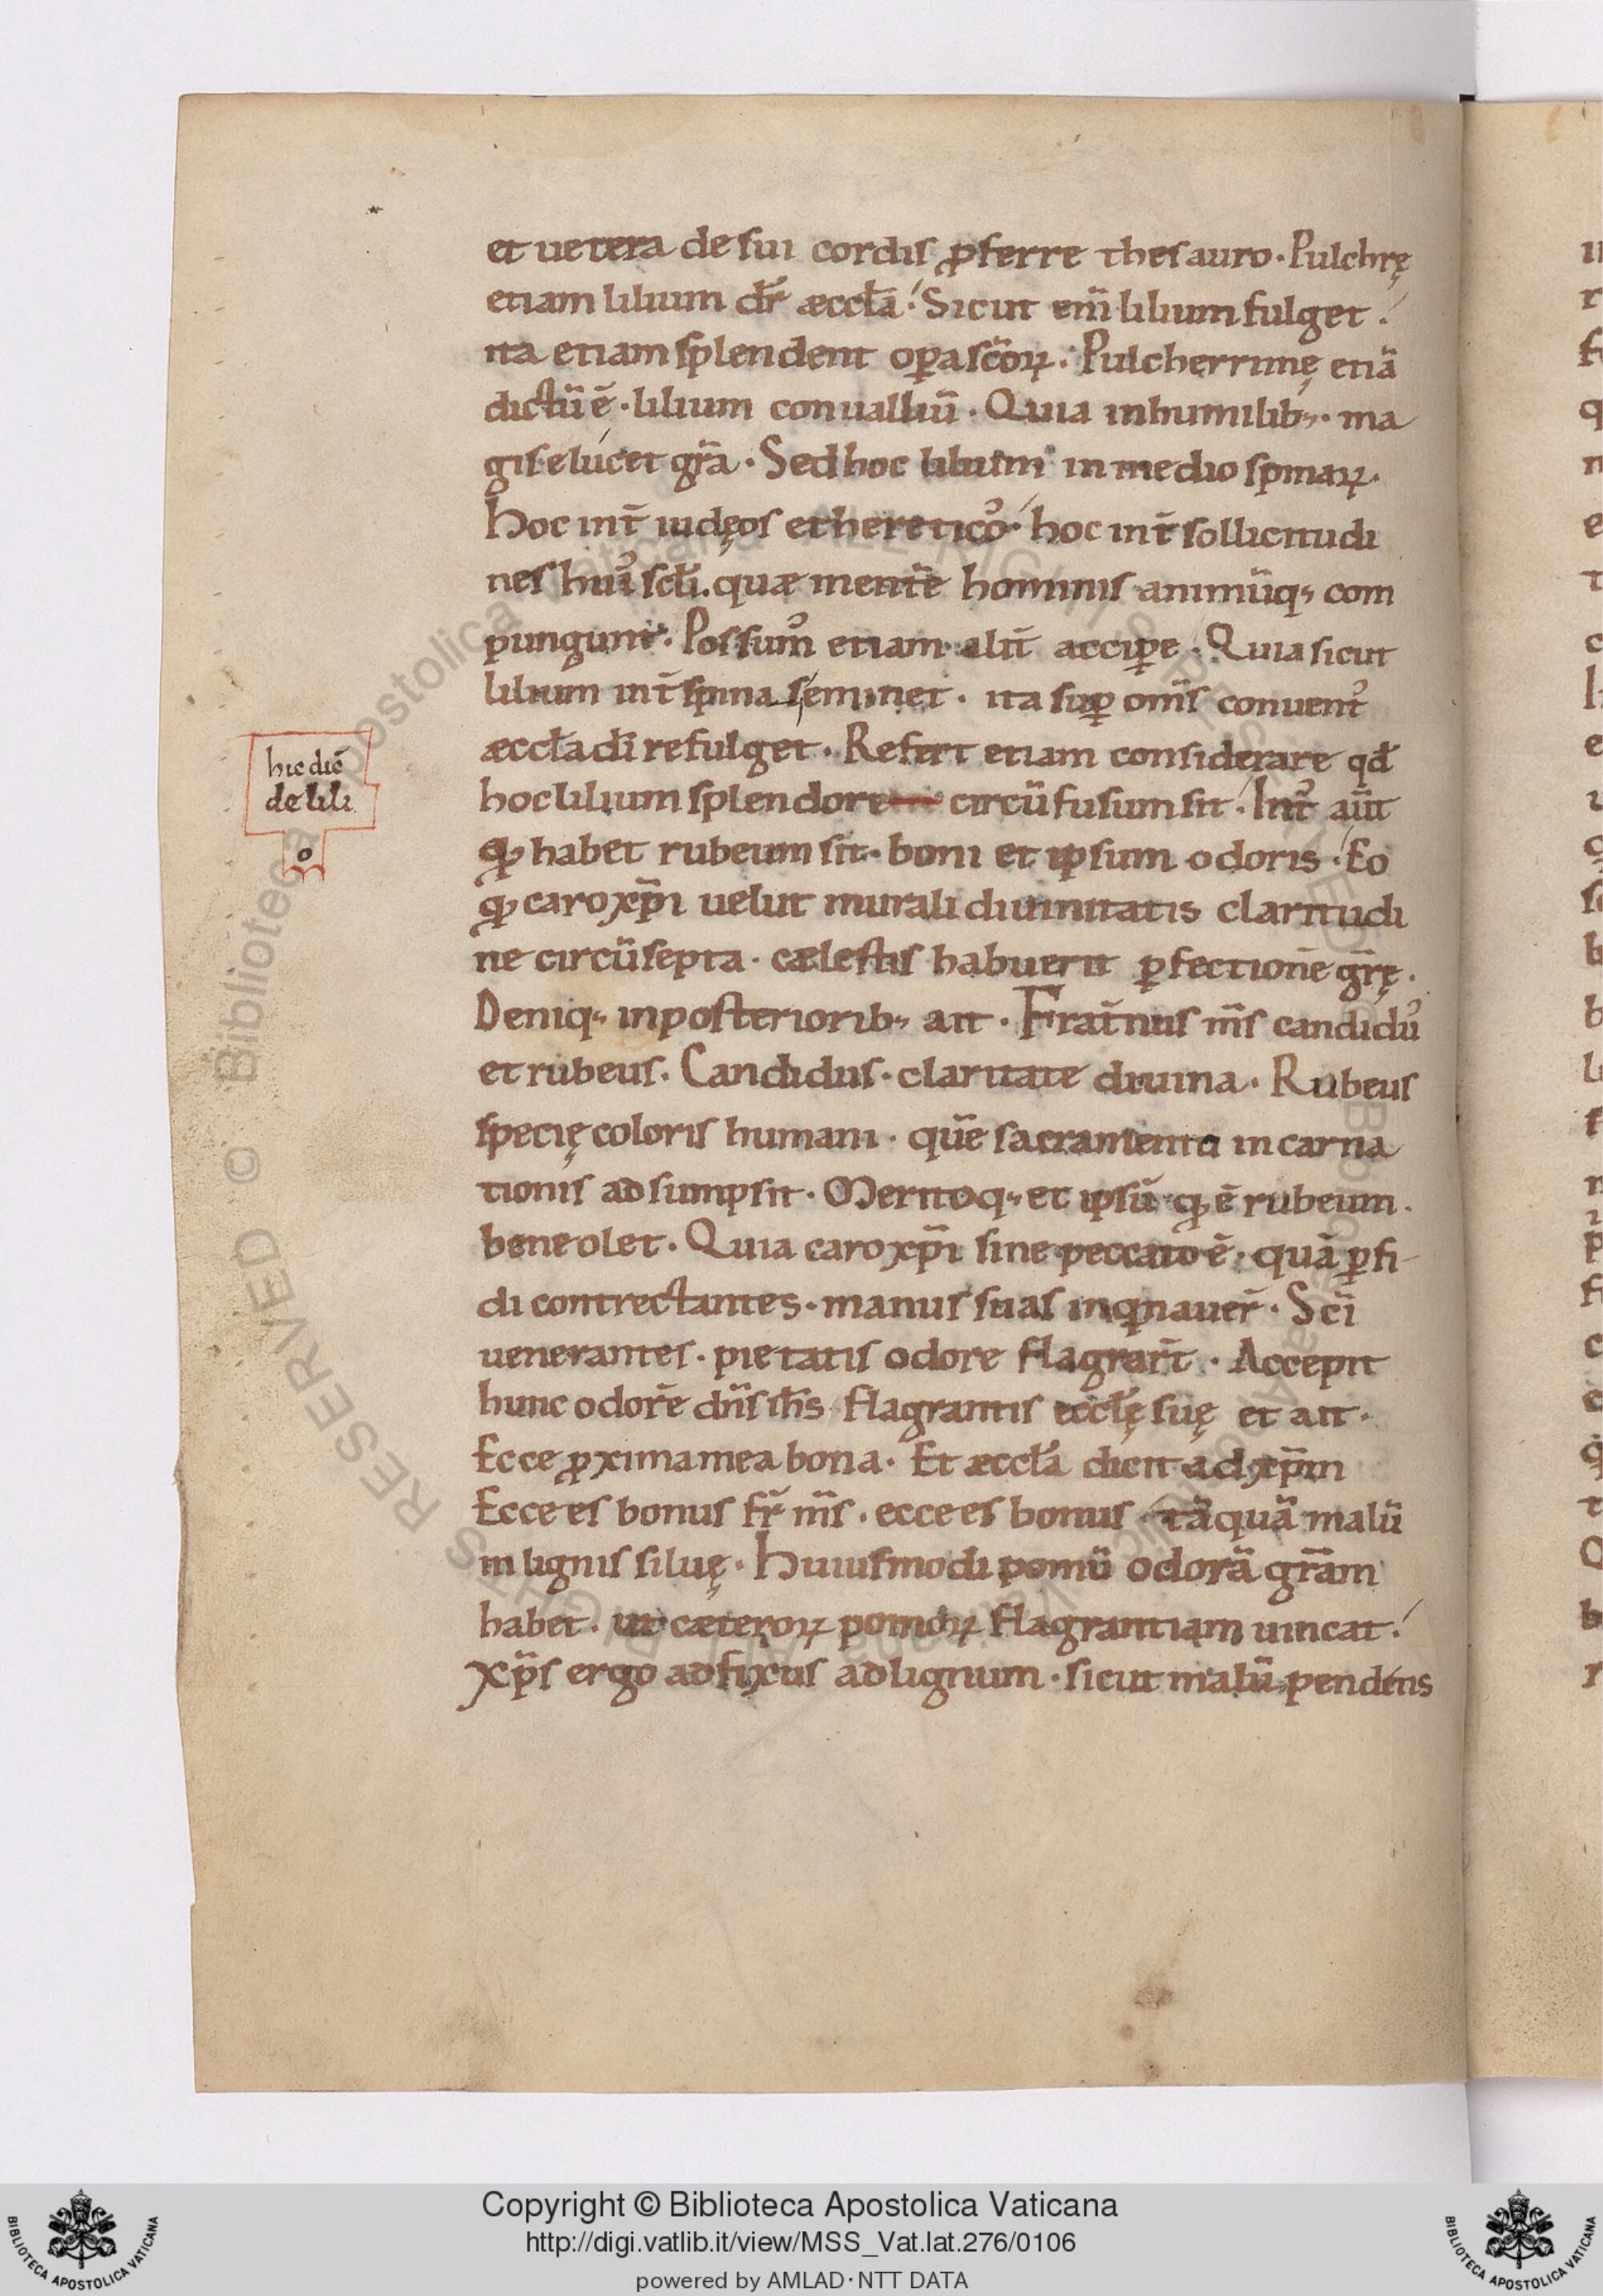 et uetera de sui cordis ꝓferre thesauro. Pulchrę
etiam lilium dr̄ æccła. Sicut em̄ lilium fulget.
ita etiam splendent oꝑa scōꝝ. Pulcherrimę etiā
dictū ē. lilium conualliū. Quia in humilib;. ma
gis elucet gr̄a. Sed hoc lilium in medio spinaꝝ.
Hoc int̄ iudęos et hereticoꝰ. hoc int̄ sollicitudi
nes huiꝰ scłi. quæ mentē hominis animūq; com
pungunt. Possumꝰ etiam alit̄ acciꝑe. Quia sicut
lilium int̄ spinas eminet. ita suꝑ om̄s conuentꝰ
æccła di refulget. Refert etiam considerare qđ
hoc lilium splendore circūfusum sit. Intꝰ aūt
qͦ habet rubeum sit. boni et ipsum odoris. Eo
qͦ caro xp̄i uelut murali diuinitatis claritudi
ne circūsepta. cælestis habuerit ꝑfectionē gr̄ę.
Deniq; in posteriorib; ait. Frat̄nus m̄s candidꝰ
et rubeus. Candidus. claritate diuina. Rubeus
specię coloris humani. quē sacramento incarna
tionis adsumpsit. Meritoq; et ipsū qͦ ē rubeum.
bene olet. Quia caro xp̄i sine peccato ē. quā ꝑfi-
di contrectantes. manus suas inqͥnauer̄. Sc̄i
uenerantes. pietatis odore flagrar̄t. Accepit
hunc odorē dn̄s ih̄s flagrantis eccłę suę et ait.
Ecce ꝓxima mea bona. Et æccła dicit ad xp̄m
Ecce es bonus fr̄ m̄s. ecce es bonus. tāquā malū
in lignis siluę. Huiusmodi pomū odorā gr̄am
habet. ut cæteroꝝ pomoꝝ flagrantiam uincat.
Xp̄s ergo adfixus ad lignum. sicut malū pendens
hic diē
de lili
o
Biblioteca Apostolica Vaticana ALL RIGHTS RESERVED ©
Copyright © Biblioteca Apostolica Vaticana
http://digi.vatlib.it/view/MSS_Vat.lat.276/0106
powered by AMLAD·NTT DATA
BIBLIOTECA APOSTOLICA VATICANA
BIBLIOTECA APOSTOLICA VATICANA